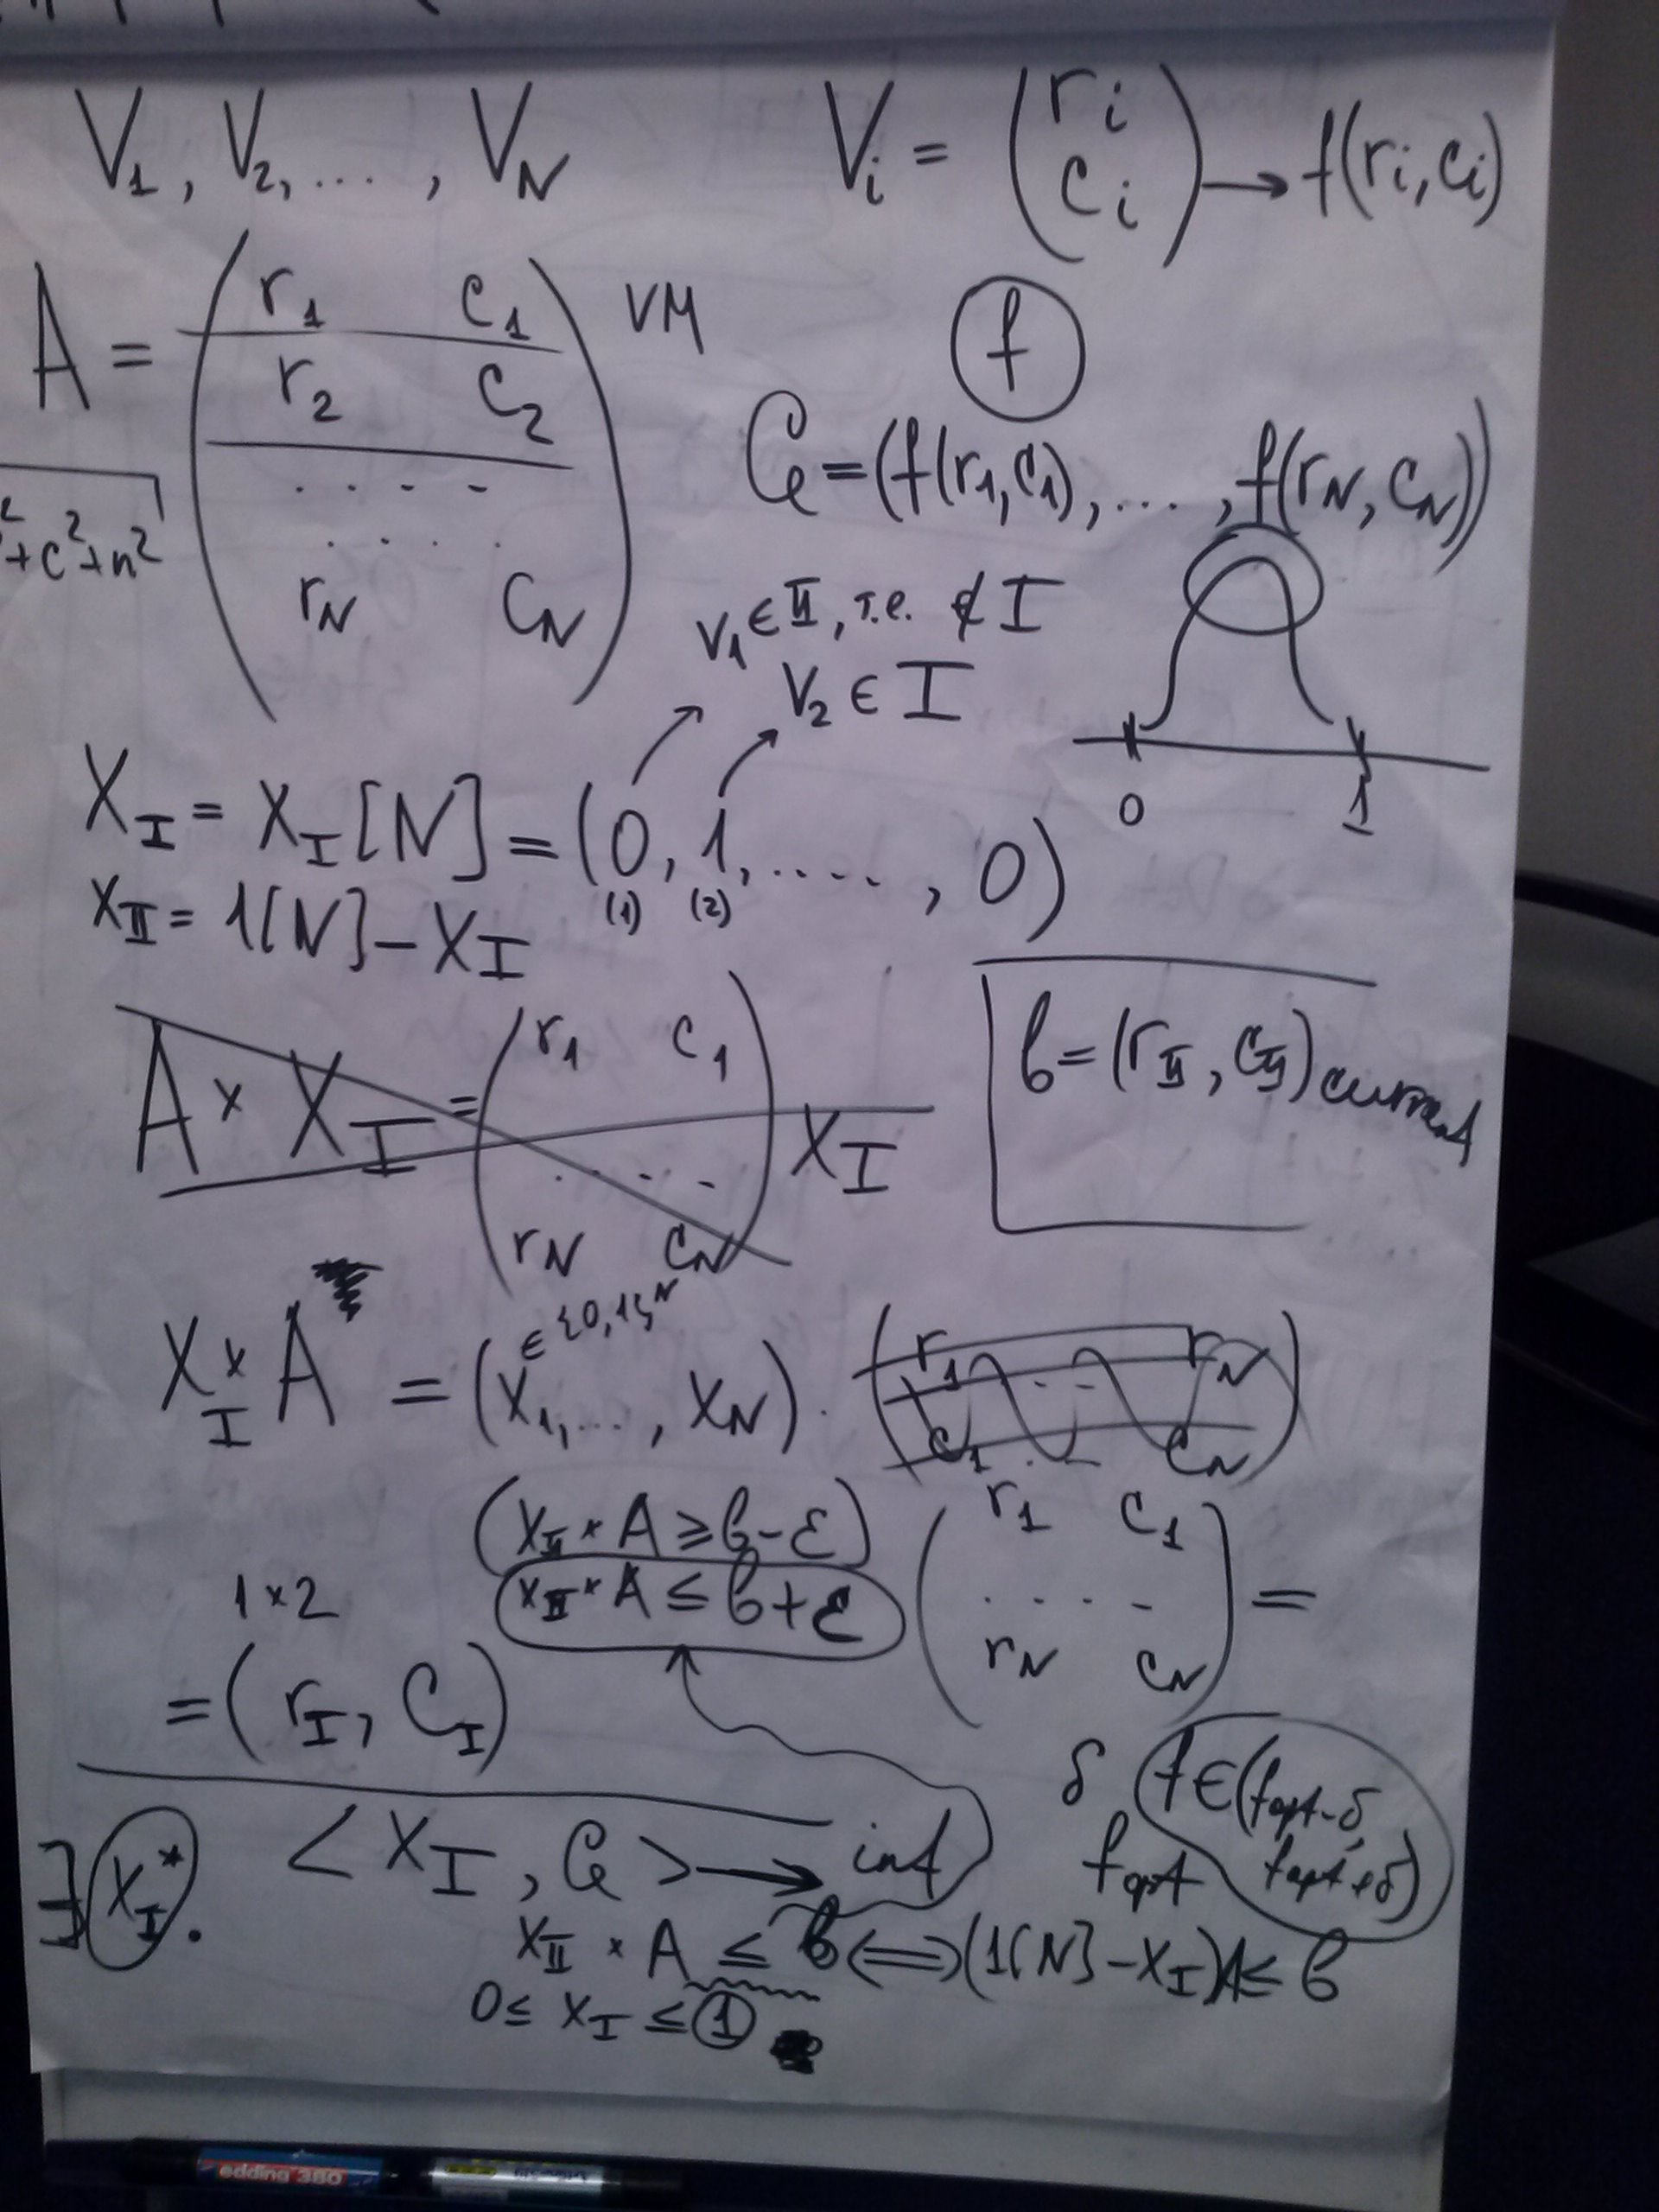 V₁, V₂, ...., V_N
V_i = (r_i c_i) → f(r_i, c_i)
A = (r₁ c₁
r₂ c₂
. . . .
. . . .
r_N C_N)
VM
f
C = (f(r₁, c₁), ...., f(r_N, c_N))
² + c² + n²
V₁ ∈ II, т.е. ∉ I
V₂ ∈ I
0 1
X_I = X_I[N] = (0, 1, ....., 0)
(1) (2)
X_II = 1[N] - X_I
A × X_I = (r₁ c₁
. . . .
r_N c_N) X_I
b = (r_II, c_II) current
X_I × A = (x₁, ..., x_N) · (r₁ . . r_N
c₁ . . c_N)
∈ {0,1}^N
(X_II × A ≥ b - ε)
X_II × A ≤ b + ε
(r₁ c₁
. . . .
r_N c_N) =
1 × 2
= (r_I, C_I)
δ f ∈ (f_opt - δ, f_opt + δ)
f_opt
∃ X_I*.
< X_I, C > → inf
X_II × A ≤ b ⟺ (1[N] - X_I)A ≤ b
0 ≤ X_I ≤ 1
edding 380